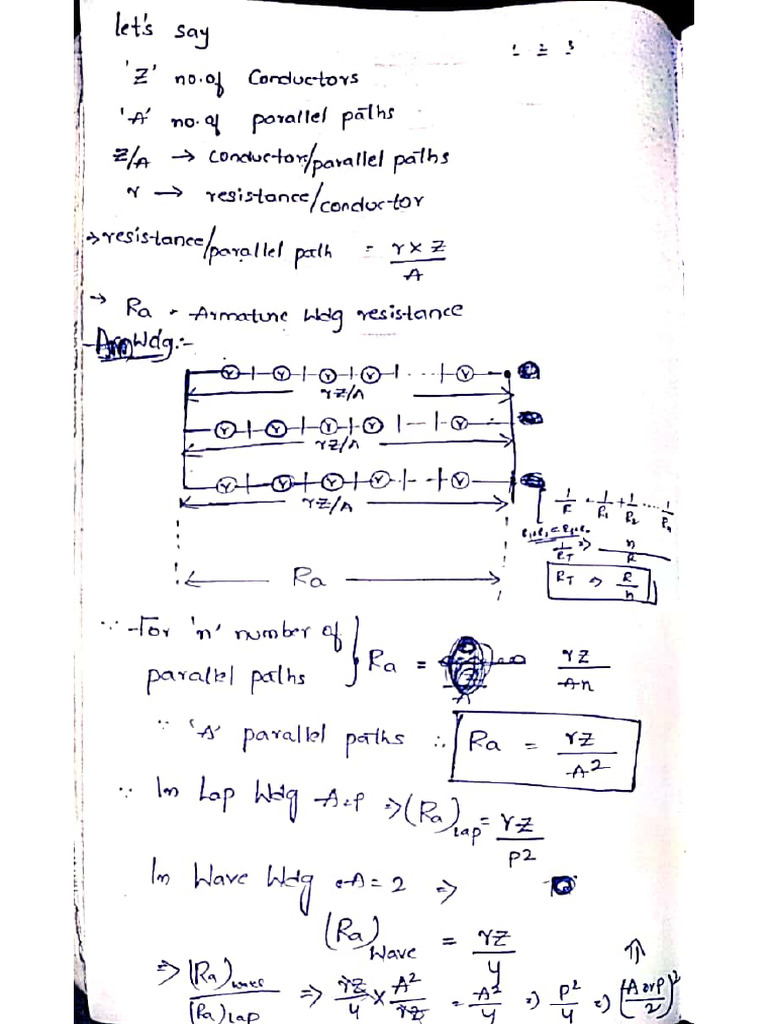 let's say
'Z' no.of Conductors
'A' no.of parallel paths
Z/A → conductors/parallel paths
r → resistance/conductor
⇒ resistance/parallel path = r×Z/A
→ Ra = Armature Wdg resistance
Arm Wdg:-
rZ/A
rZ/A
rZ/A
1/R = 1/R1 + 1/R2 .... 1/Rn
1/RT ⇒ n/R
RT ⇒ R/n
Ra
∵ For 'n' number of
parallel paths } Ra = rZ/An
∵ 'A' parallel paths ∴ Ra = rZ/A²
∵ In Lap Wdg A=P ⇒ (Ra)lap = rZ/P2
In Wave Wdg A=2 ⇒
(Ra)Wave = rZ/4
⇒ (Ra)wave/(Ra)Lap ⇒ rZ/4 × A²/rZ = A²/4 ⇒ P²/4 ⇒ (A or P/2)²